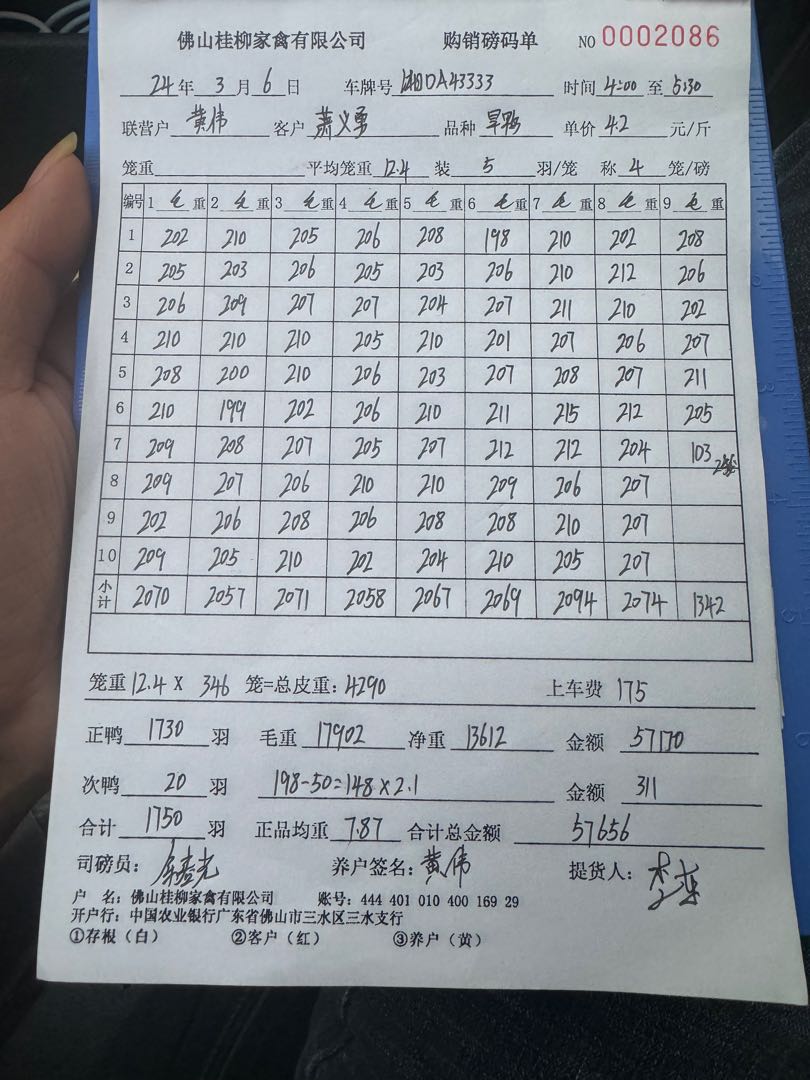 佛山桂柳家禽有限公司 购销磅码单 NO 0002086
24年 3月 6日 车牌号 湘DA43333 时间 4:00 至 5:30
联营户 黄伟 客户 萧义勇 品种 旱鸭 单价 4.2 元/斤
笼重 平均笼重 12.4 装 5 羽/笼 称 4 笼/磅
编号 1 毛重 2 毛重 3 毛重 4 毛重 5 毛重 6 毛重 7 毛重 8 毛重 9 毛重
1 202 210 205 206 208 198 210 202 208
2 205 203 206 205 203 206 210 212 206
3 206 209 207 207 204 207 211 210 202
4 210 210 210 205 210 201 207 206 207
5 208 200 210 206 203 207 208 207 211
6 210 199 202 206 210 211 215 212 205
7 209 208 207 205 207 212 212 204 103 2笼
8 209 207 206 210 210 209 206 207
9 202 206 208 206 208 208 210 207
10 209 205 210 202 204 210 205 207
小计 2070 2057 2071 2058 2067 2069 2094 2074 1342
笼重 12.4 X 346 笼=总皮重: 4290 上车费 175
正鸭 1730 羽 毛重 17902 净重 13612 金额 57170
次鸭 20 羽 198-50=148×2.1 金额 311
合计 1750 羽 正品均重 7.87 合计总金额 57656
司磅员: 养户签名: 黄伟 提货人:
户 名: 佛山桂柳家禽有限公司 账号: 444 401 010 400 169 29
开户行: 中国农业银行广东省佛山市三水区三水支行
①存根(白) ②客户(红) ③养户(黄)